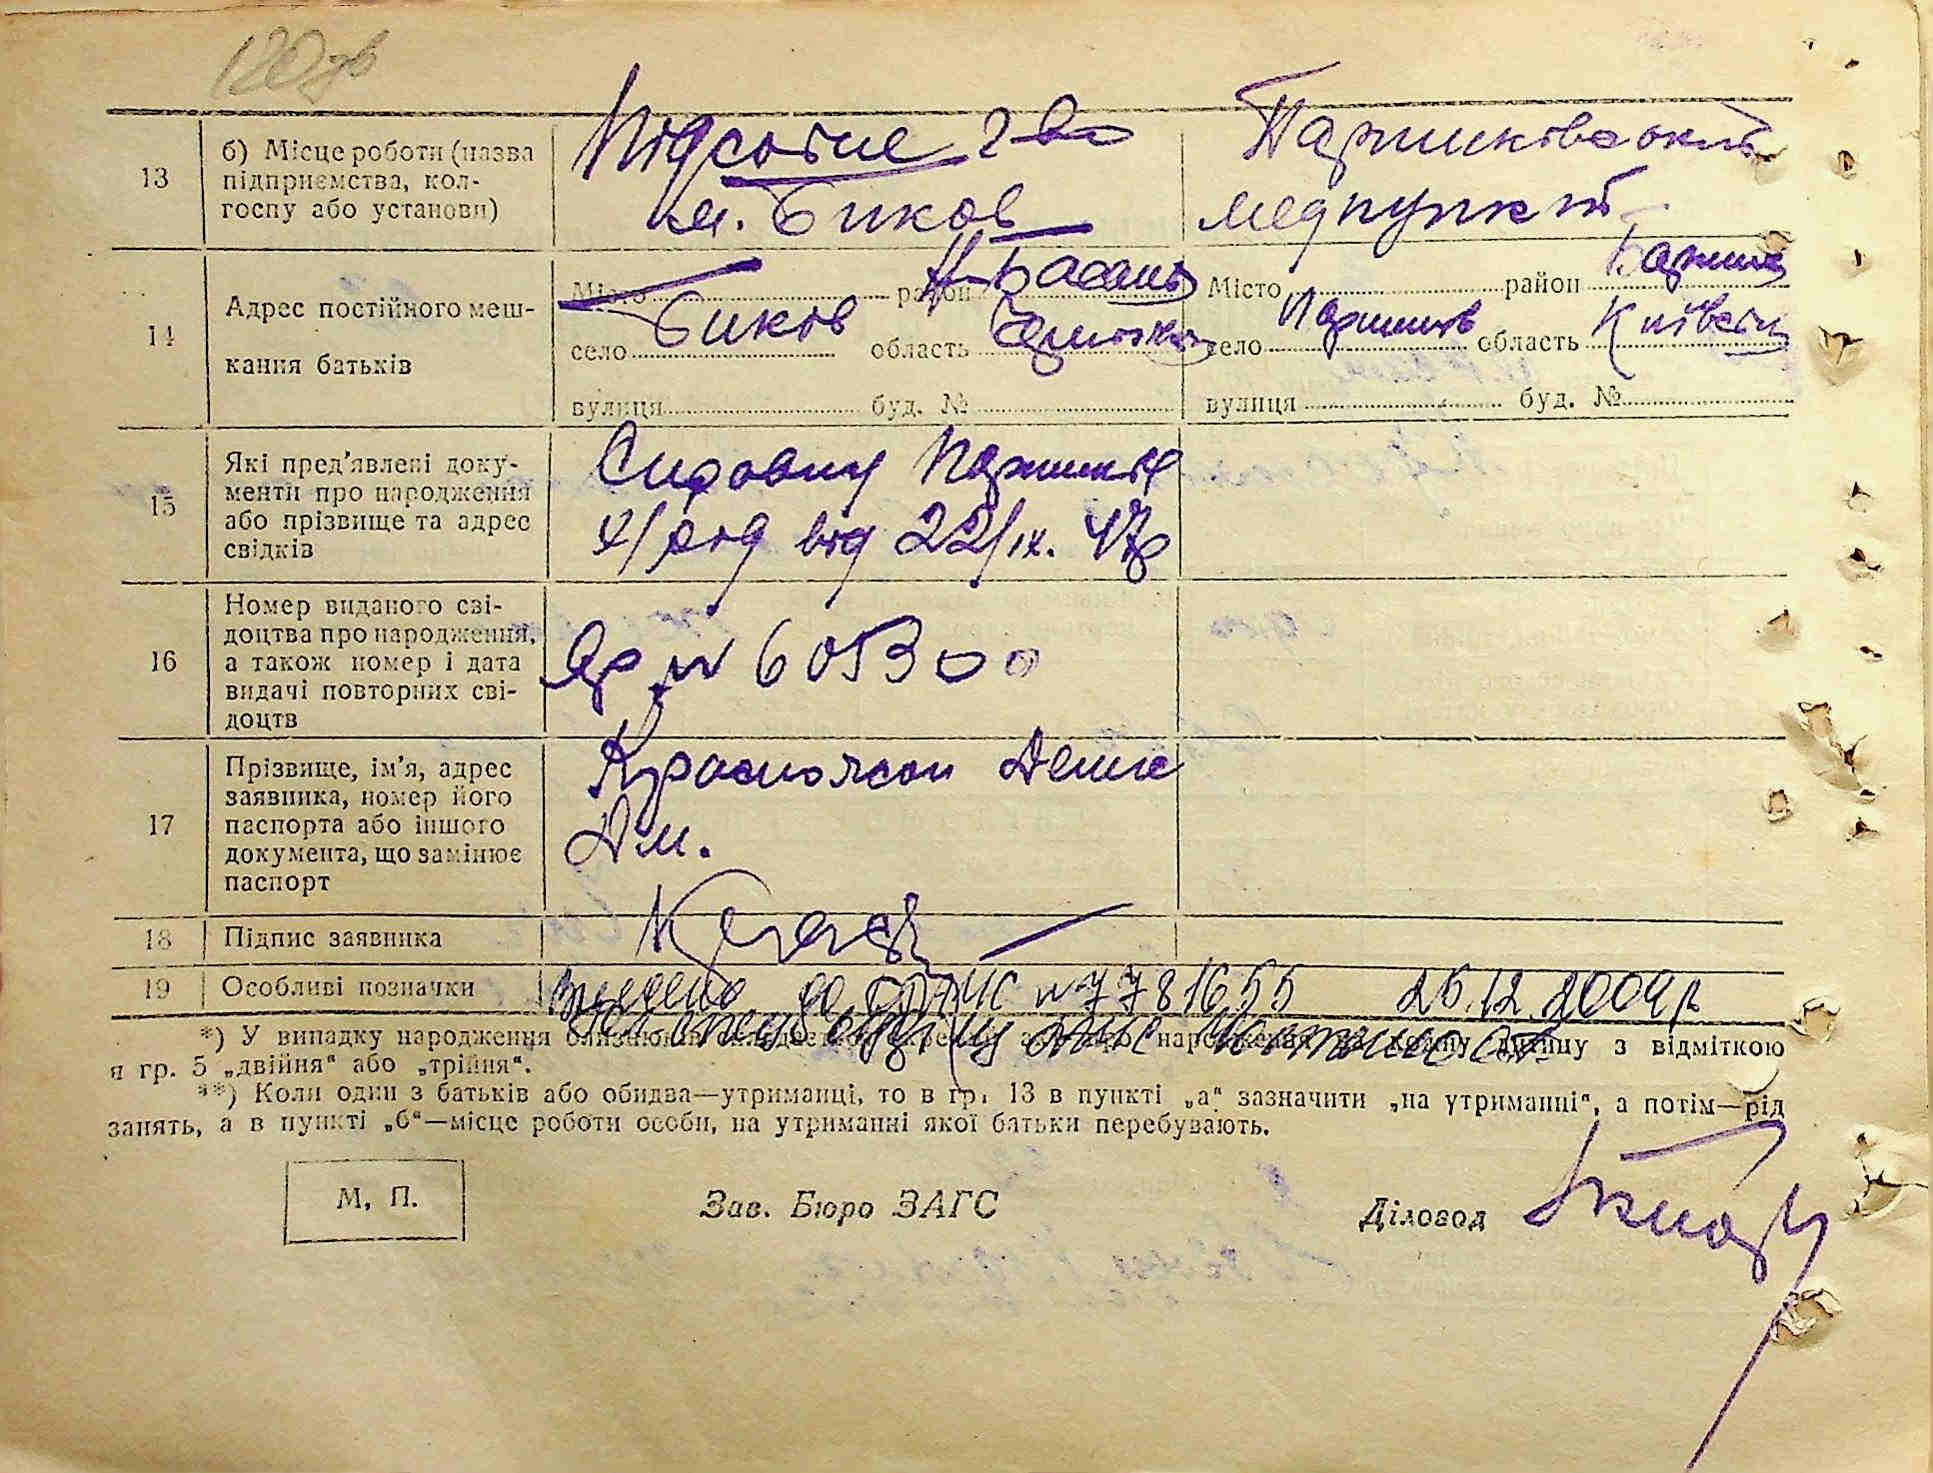 120 зв
13
б) Місце роботи (назва
підприємства, кол-
госпу або установи)
Підсобне г-во
м. Биков
Паришківський
медпункт
14
Адрес постійного меш-
кання батьків
Місто район Н-Басань
село Биков область
вулиця буд. №
Місто район Баришів
село Паришків область Київськ
вулиця буд. №
15
Які пред'явлені доку-
менти про народження
або прізвище та адрес
свідків
Паришків
від 22/ІХ. 47р
16
Номер виданого сві-
доцтва про народження,
а також номер і дата
видачі повторних сві-
доцтв
№ 605300
17
Прізвище, ім'я, адрес
заявника, номер його
паспорта або іншого
документа, що замінює
паспорт
Дм.
18
Підпис заявника
19
Особливі позначки
Внесено до ДРАЦС №7781655 25.12.2009р
*) У випадку народження близнюків складається окремий запис про народження на кожну дитину з відміткою
я гр. 5 „двійня“ або „трійня“.
**) Коли один з батьків або обидва—утриманці, то в гр. 13 в пункті „а“ зазначити „на утриманні“, а потім—рід
занять, а в пункті „б“—місце роботи особи, на утриманні якої батьки перебувають.
М. П.
Зав. Бюро ЗАГС
Діловод